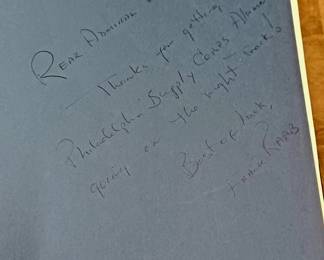 Rear Admiral
— Thanks for getting
Philadelphia Supply Corps Alumni
going on the right track!
Best of luck,
Frank Raab